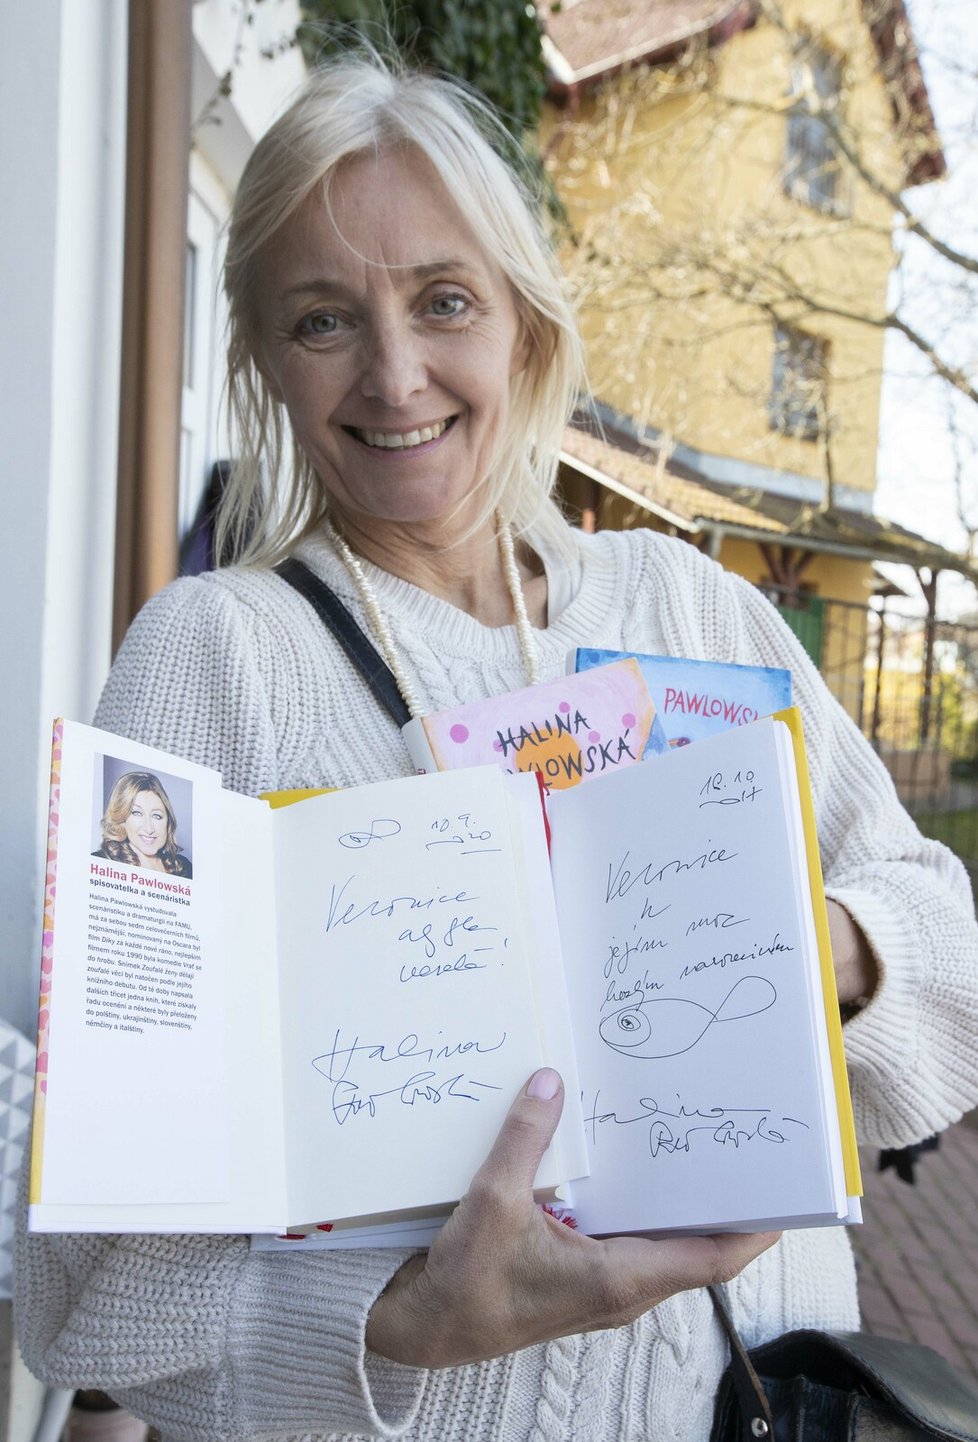 HALINA
PAWLOWSKÁ
PAWLOWS
Halina Pawlowská
spisovatelka a scenáristka
Halina Pawlowská vystudovala
scenáristiku a dramaturgii na FAMU,
má za sebou sedm celovečerních filmů,
nejznámější, nominovaný na Oscara byl
film Díky za každé nové ráno, nejlepším
filmem roku 1990 byla komedie Vrať se
do hrobu. Snímek Zoufalé ženy dělají
zoufalé věci byl natočen podle jejího
knižního debutu. Od té doby napsala
dalších třicet jedna knih, které získaly
řadu ocenění a některé byly přeloženy
do polštiny, ukrajinštiny, slovenštiny,
němčiny a italštiny.
10.9.
2020
Veronice
veselá!
Halina
Pawlowská
Veronice
k
jejím
narozeninám
Halina
Pawlowská